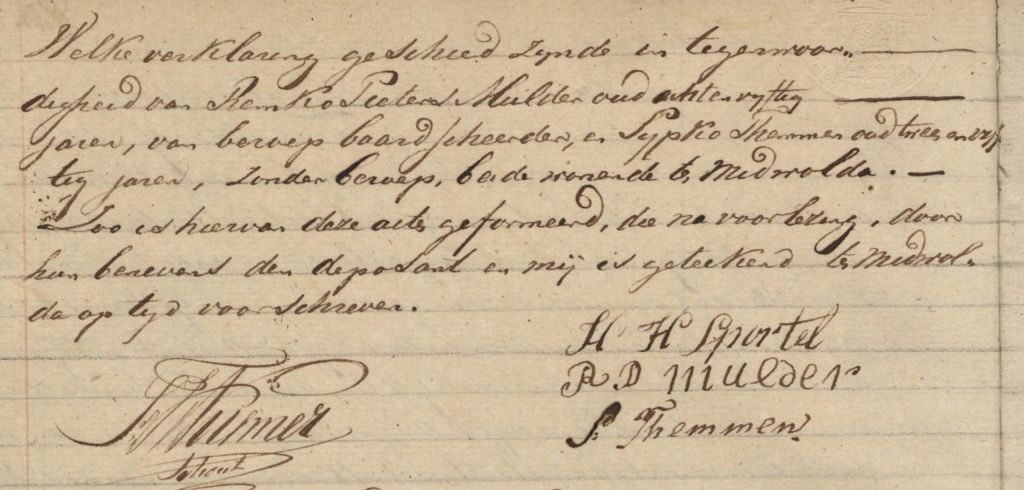 Welke verklaring geschied zynde in tegenwoor„
digheid van Remko Pieters Mulder oud achtenvyftig
jaren, van beroep baardscheerder, en Sypko Themmen oud twee en vyf
tig jaren, zonder beroep, beide wonende te Midwolda. —
Zoo is hiervan deze acte geformeerd, die na voorlezing, door
hun benevens den deposant en mij is geteekend te Midwol„
da op tyd voorschreven.
H H Sportel
R P Mulder
S. Themmen
Schout